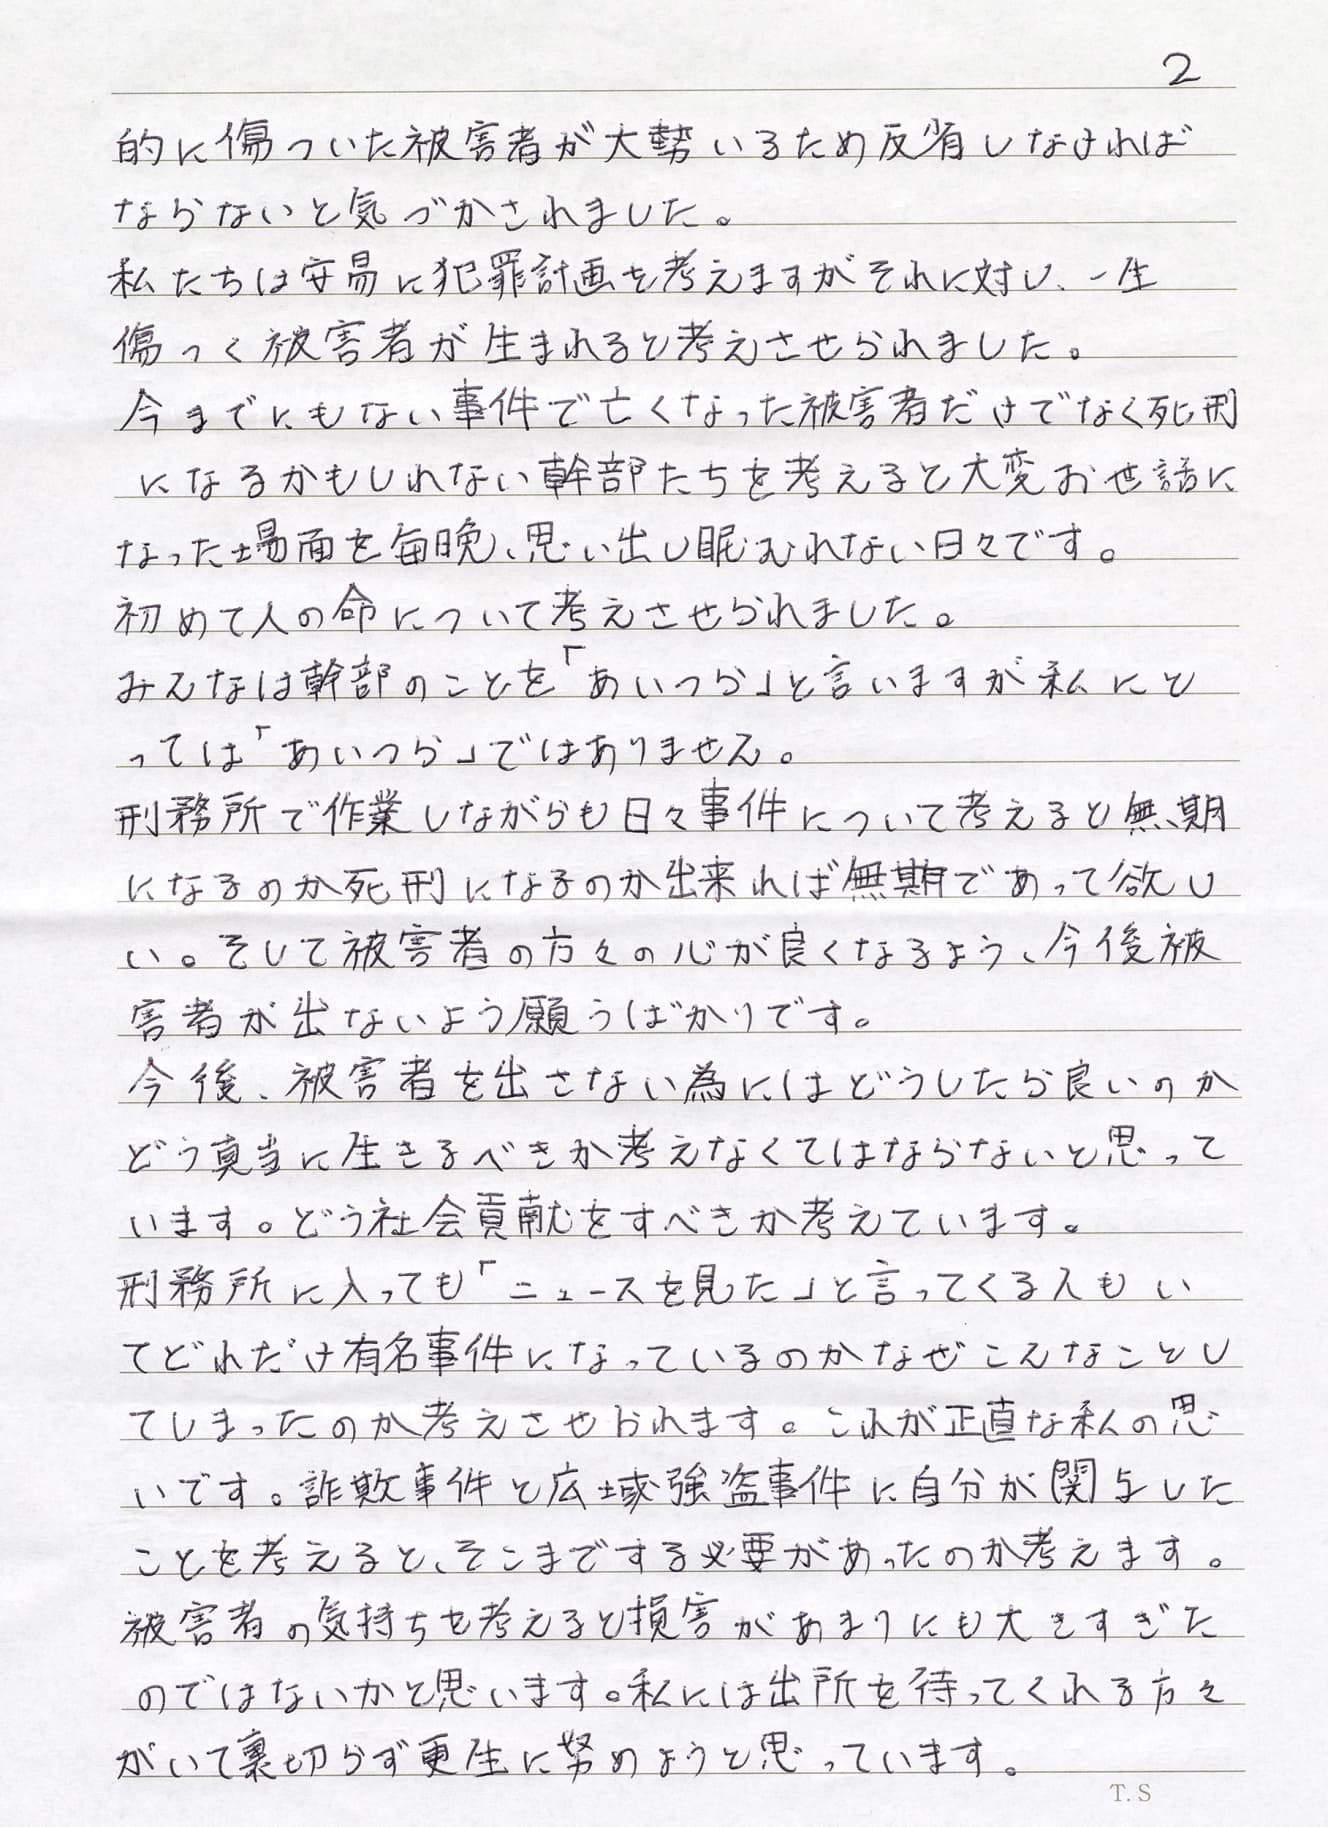 2
的に傷ついた被害者が大勢いるため反省しなければ
ならないと気づかされました。
私たちは安易に犯罪計画を考えますがそれに対し、一生
傷つく被害者が生まれると考えさせられました。
今までにもない事件で亡くなった被害者だけでなく死刑
になるかもしれない幹部たちを考えると大変お世話に
なった場面を毎晩、思い出し眠むれない日々です。
初めて人の命について考えさせられました。
みんなは幹部のことを「あいつら」と言いますが私にと
っては「あいつら」ではありません。
刑務所で作業しながらも日々事件について考えると無期
になるのか死刑になるのか出来れば無期であって欲し
い。そして被害者の方々の心が良くなるよう、今後被
害者が出ないよう願うばかりです。
今後、被害者を出さない為にはどうしたら良いのか
どう真当に生きるべきか考えなくてはならないと思って
います。どう社会貢献をすべきか考えています。
刑務所に入っても「ニュースを見た」と言ってくる人もい
てどれだけ有名事件になっているのかなぜこんなことし
てしまったのか考えさせられます。これが正直な私の思
いです。詐欺事件と広域強盗事件に自分が関与した
ことを考えると、そこまでする必要があったのか考えます。
被害者の気持ちを考えると損害があまりにも大きすぎた
のではないかと思います。私には出所を待ってくれる方々
がいて裏切らず更生に努めようと思っています。
T.S